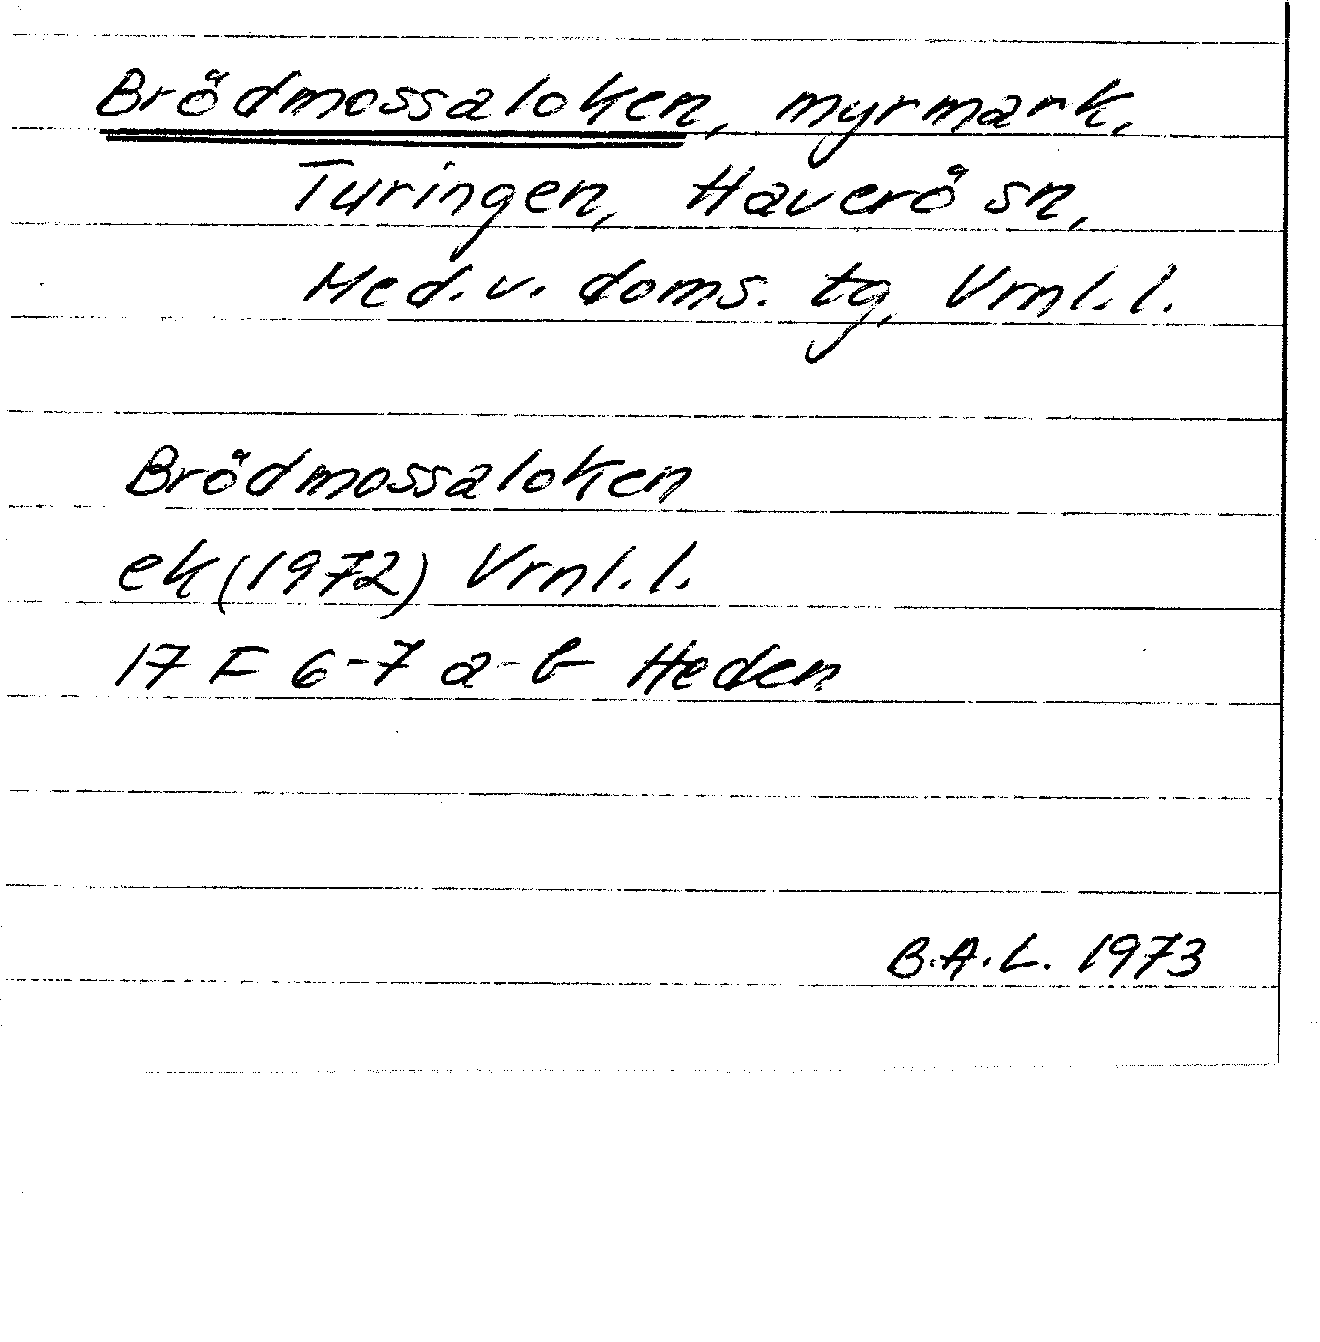 Brödmossaloken, myrmark,
Turingen, Haverö sn,
Med. v. doms. tg, Vrnl. l.
Brödmossaloken
ek (1972) Vrnl. l.
17 F 6-7 a-b Heden
B.A.L. 1973